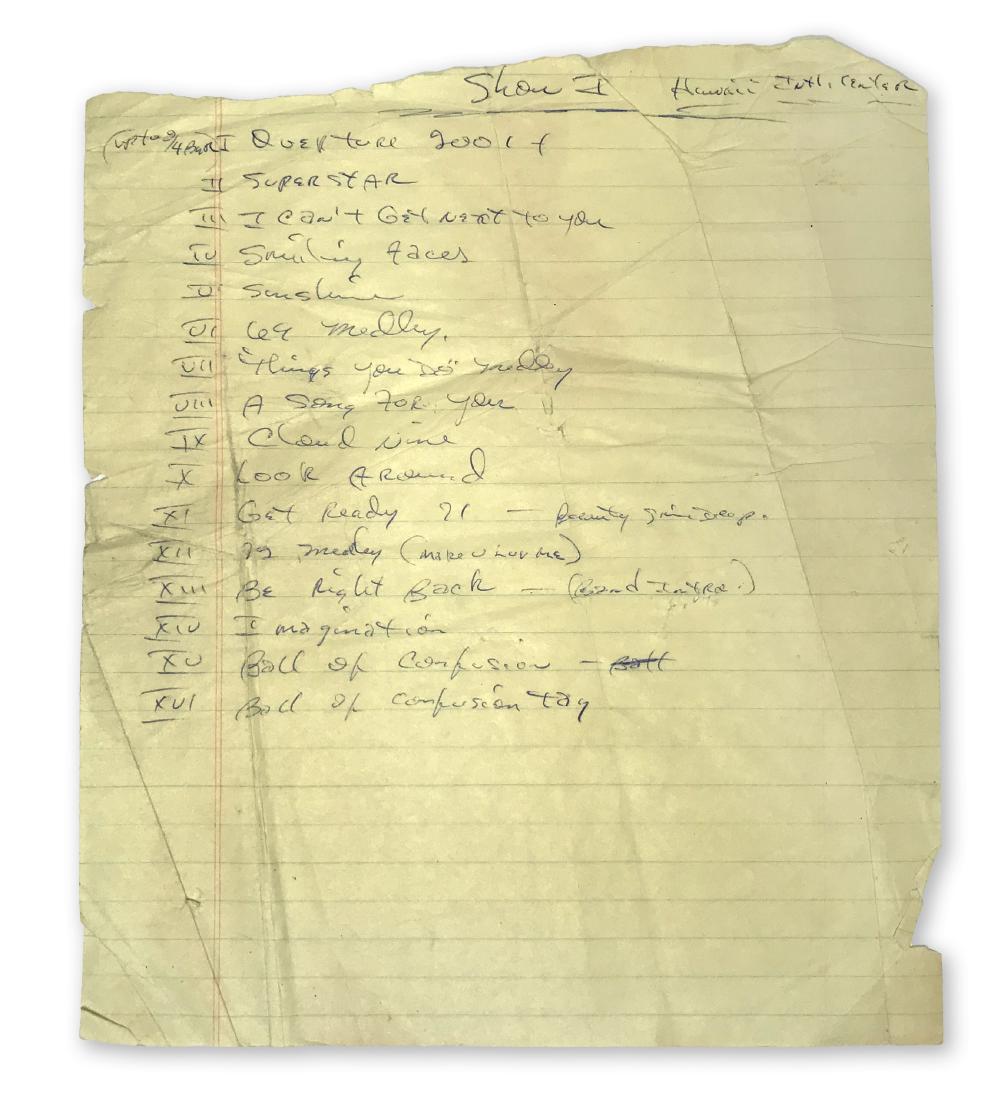 Show I Hawaii Intl. Center
(up to 3/4 Bar) I Overture 2001
II SUPERSTAR
III I can't Get next to you
IV Smiling faces
V Sunshine
VI 69 medley.
VII "Things you Do" medley
VIII A Song FOR you
IX Cloud nine
X Look Around
XI Get Ready 71 -
XII 79 medley (make u luv me)
XIII Be Right Back - (Band Intro.)
XIV Imagination
XV Ball of Confusion - Ball
XVI Ball of confusion tag